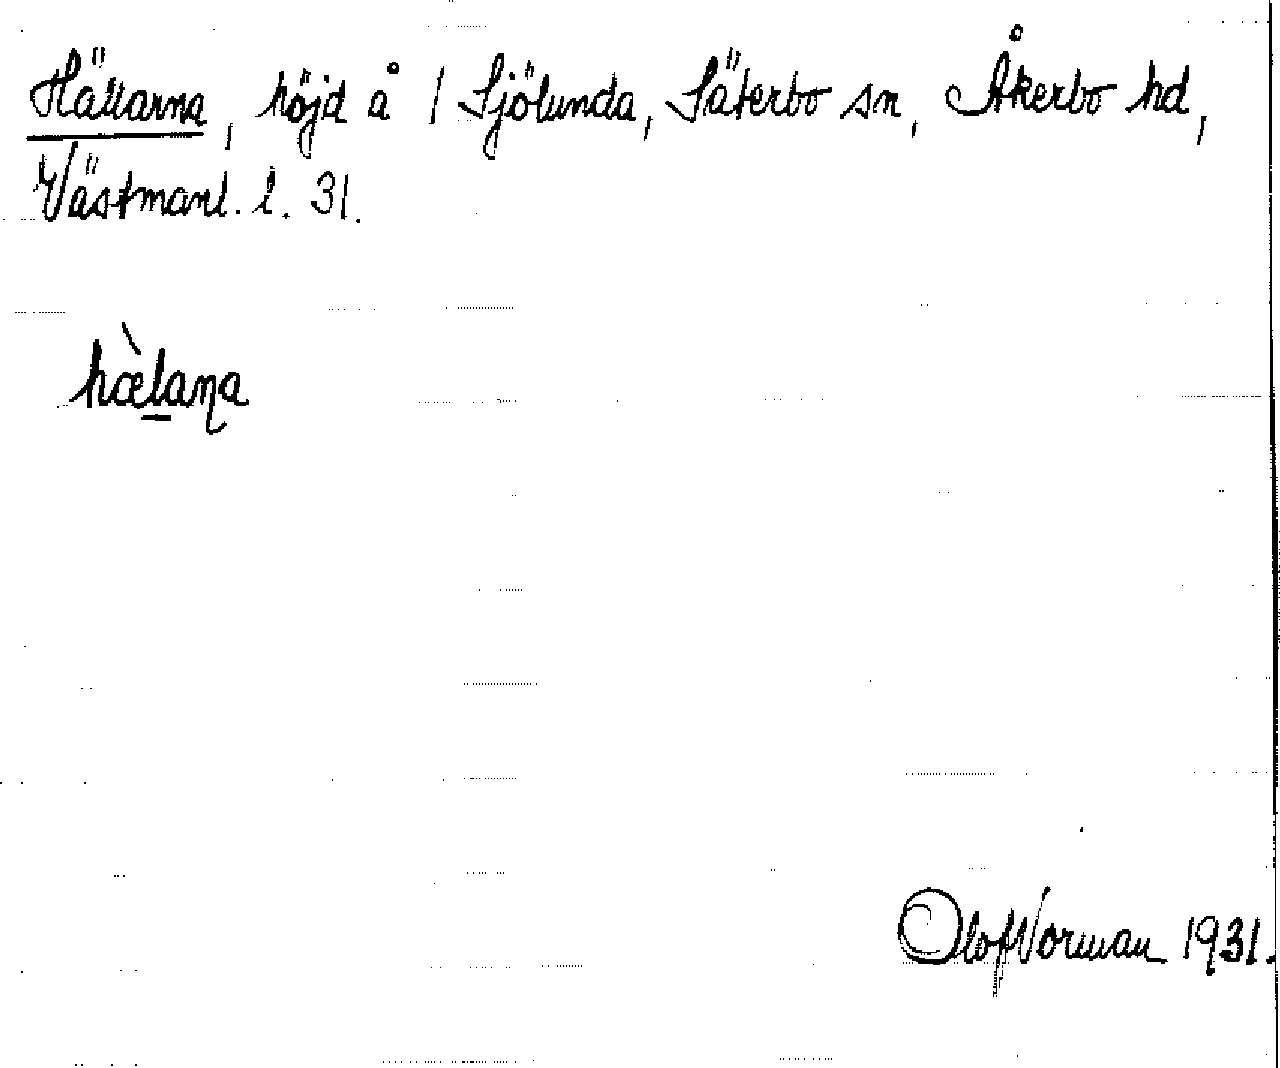 Hällarna, höjd å 1 Sjölunda, Säterbo sn, Åkerbo hd,
Västmanl. l. 31.
hæ̀l̲aṇa
Olof Norman 1931.